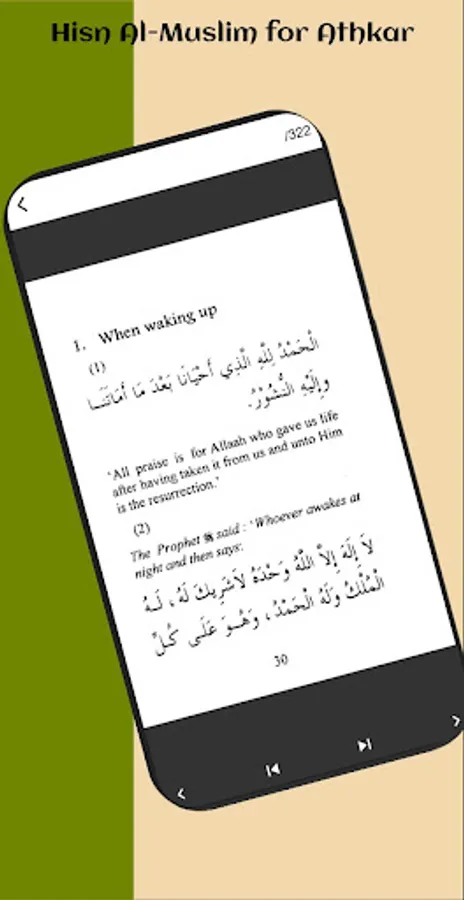 Hisn Al-Muslim for Athkar
/322
1. When waking up
(1)
الْحَمْدُ لِلَّهِ الَّذِي أَحْيَانَا بَعْدَ مَا أَمَاتَنَـا
وإِلَيْهِ النُّشُوْرُ.
'All praise is for Allaah who gave us life
after having taken it from us and unto Him
is the resurrection.'
(2)
The Prophet ﷺ said : 'Whoever awakes at
night and then says:
لاَ إِلَهَ إِلاَّ اللَّهُ وَحْدَهُ لاَشَرِيكَ لَهُ ، لَـهُ
الْمُلْكُ وَلَهُ الْحَمْدُ ، وَهُـوَ عَلَى كُـلِّ
30